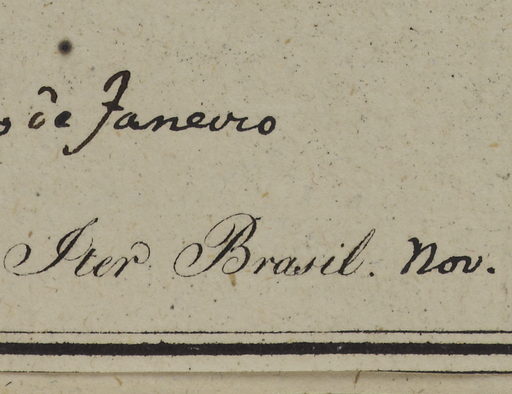 de Janeiro
Iter Brasil. Nov.